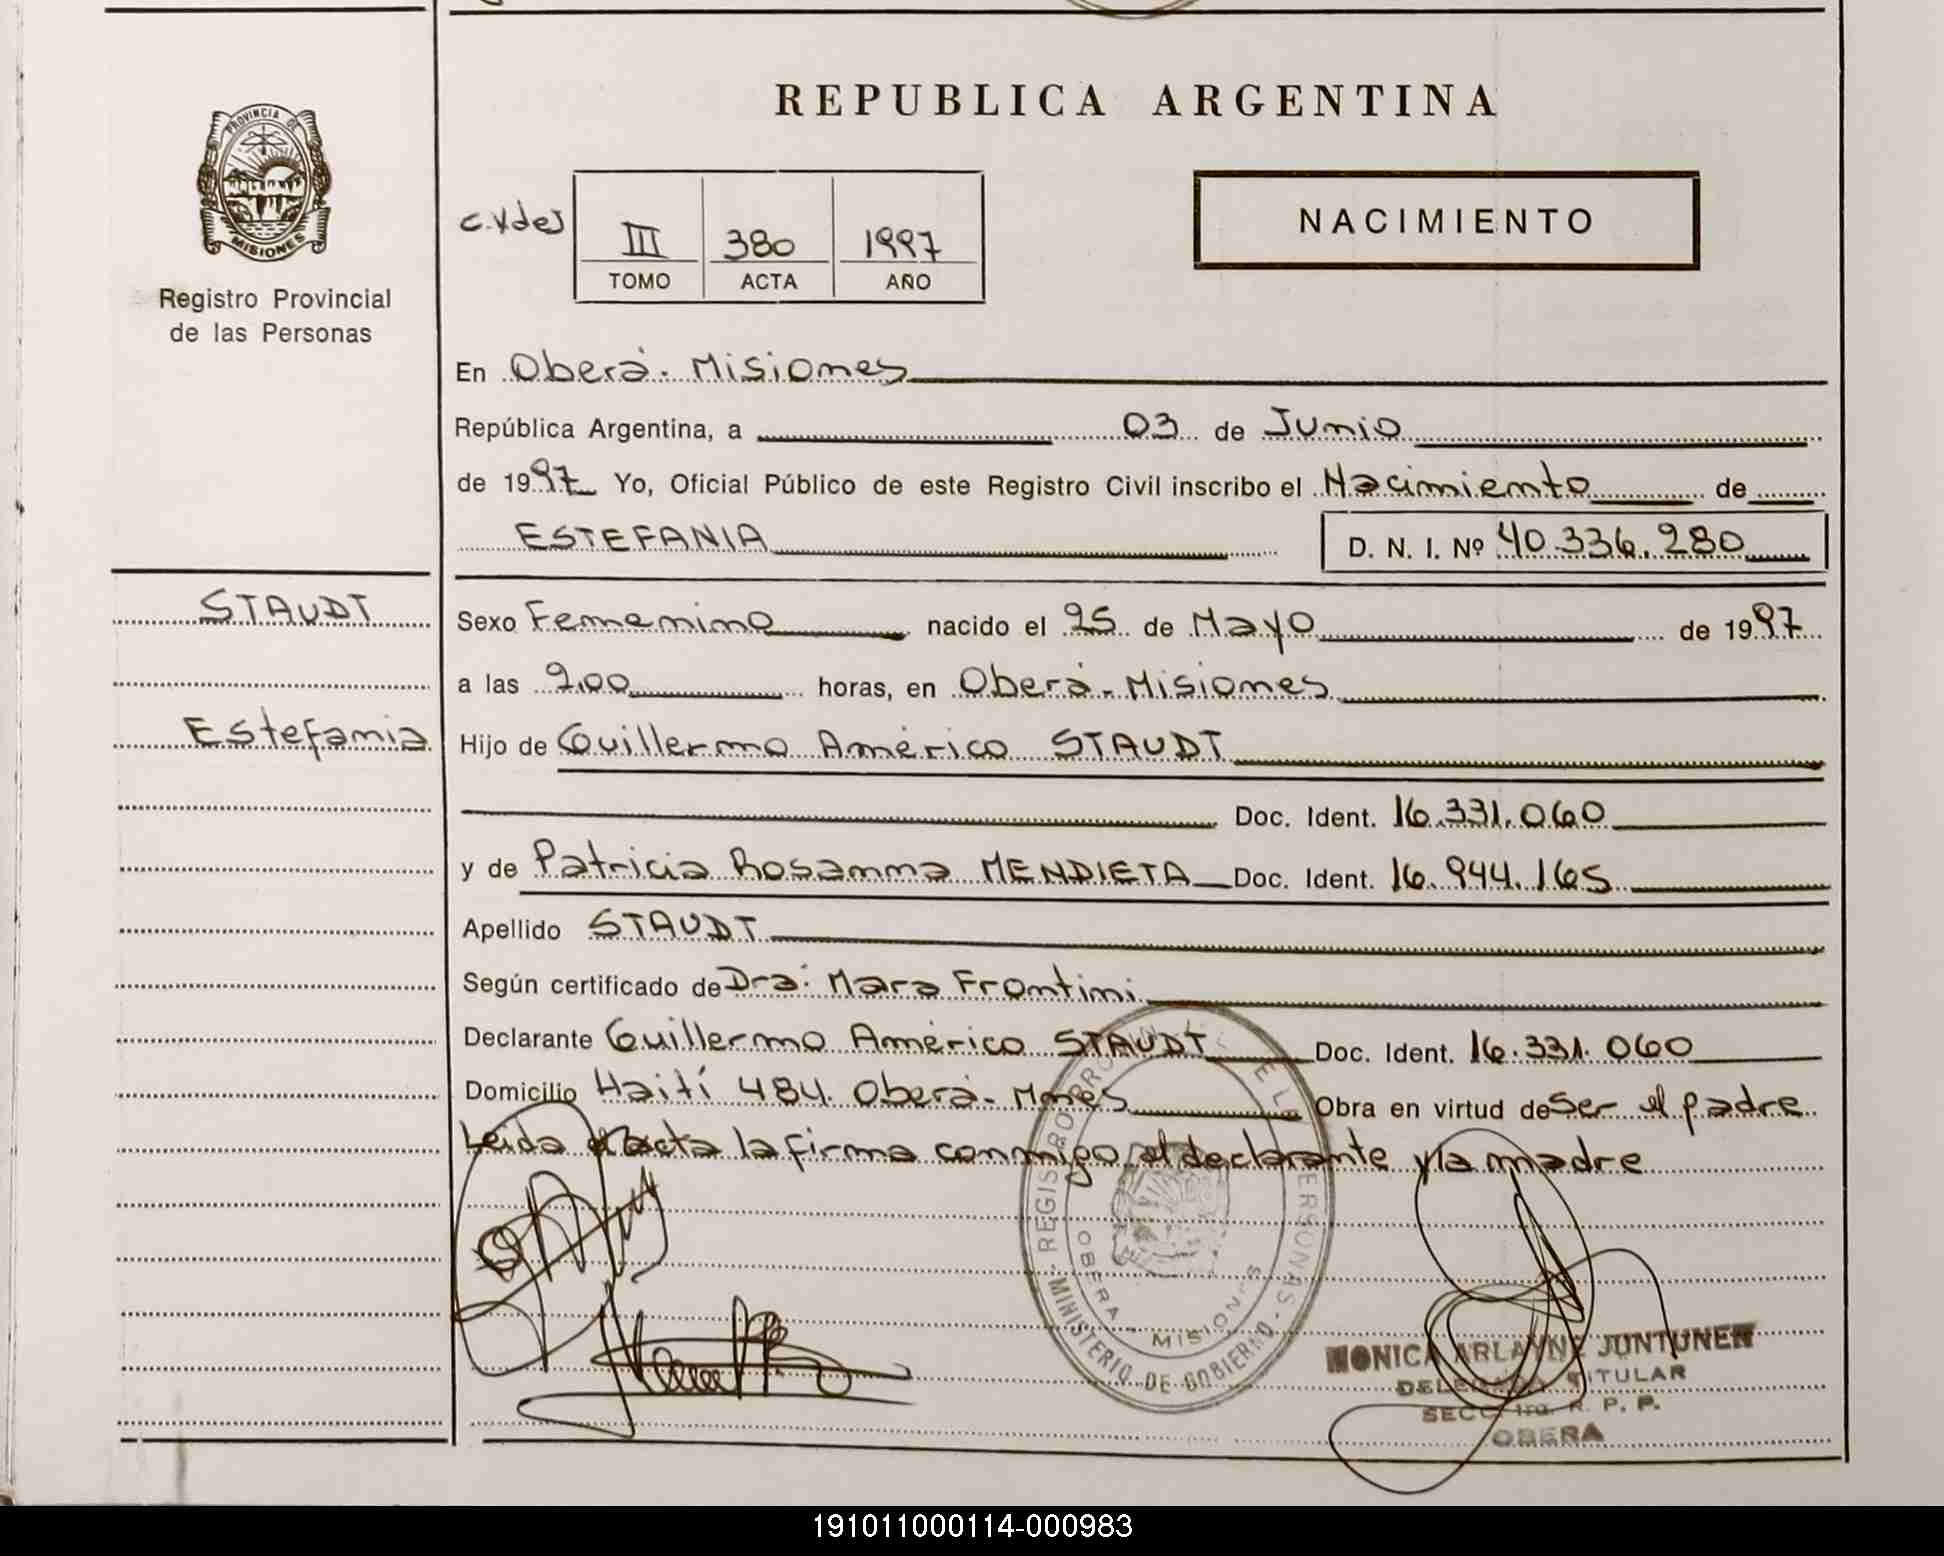 REPUBLICA ARGENTINA
PROVINCIA DE
MISIONES
Registro Provincial
de las Personas
III 380 1997
TOMO ACTA AÑO
NACIMIENTO
En Oberá. Misiones
República Argentina, a 03 de Junio
de 1997 Yo, Oficial Público de este Registro Civil inscribo el Nacimiento de
ESTEFANIA D. N. I. Nº 40.336.280
STAUDT
Sexo Femenino nacido el 25 de Mayo de 1997
a las 9,00 horas, en Oberá-Misiones
Estefania
Hijo de Guillermo Américo STAUDT
Doc. Ident. 16.331.060
y de Patricia Rosanna MENDIETA Doc. Ident. 16.944.165
Apellido STAUDT
Según certificado de Dra. Mara Frontini
Declarante Guillermo Américo STAUDT Doc. Ident. 16.331.060
Domicilio Haití 484. Oberá-Mnes Obra en virtud de Ser el padre
Leida el acta la firma conmigo, el declarante y la madre
OBERA - MISIONES
MINISTERIO DE GOBIERNO
MONICA ARLAYNE JUNTUNEN
DELEGADA TITULAR
SECC. 1ra. R. P. P.
OBERA
191011000114-000983